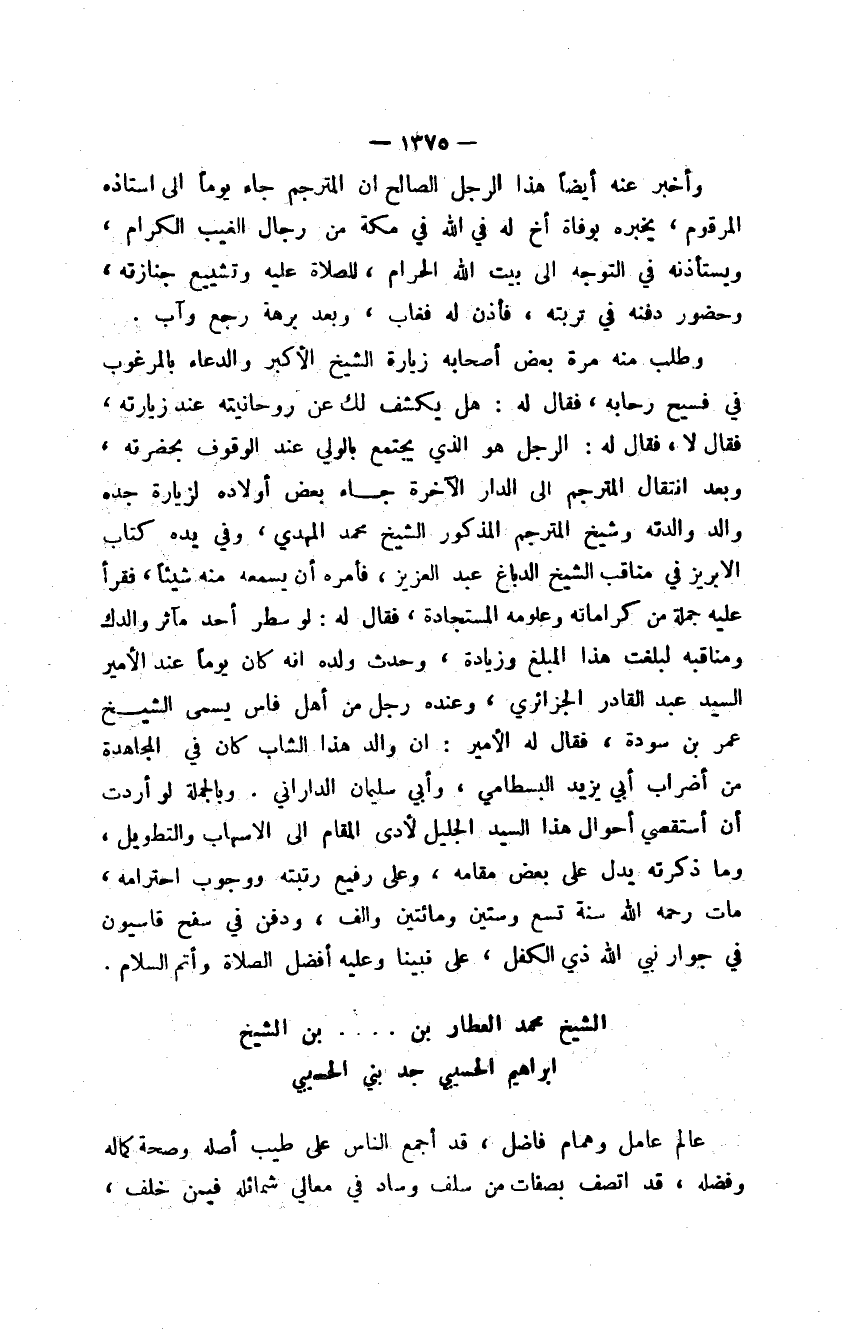 — ١٣٧٥ —
وأخبر عنه أيضاً هذا الرجل الصالح ان المترجم جاء يوماً الى استاذه
المرقوم ، يخبره بوفاة أخ له في الله في مكة من رجال الغيب الكرام ،
ويستأذنه في التوجه الى بيت الله الحرام ، للصلاة عليه وتشييع جنازته ،
وحضور دفنه في تربته ، فأذن له فغاب ، وبعد برهة رجع وآب .
وطلب منه مرة بعض أصحابه زيارة الشيخ الأكبر والدعاء بالمرغوب
في فسيح رحابه ، فقال له : هل يكشف لك عن روحانيته عند زيارته ،
فقال لا ، فقال له : الرجل هو الذي يجتمع بالولي عند الوقوف بحضرته ،
وبعد انتقال المترجم الى الدار الآخرة جـــاء بعض أولاده لزيارة جده
والد والدته وشيخ المترجم المذكور الشيخ محمد المهدي ، وفي يده كتاب
الابريز في مناقب الشيخ الدباغ عبد العزيز ، فأمره أن يسمعه منه شيئاً ، فقرأ
عليه جملة من كراماته وعلومه المستجادة ، فقال له : لو سطر أحد مآثر والدك
ومناقبه لبلغت هذا المبلغ وزيادة ، وحدث ولده انه كان يوماً عند الأمير
السيد عبد القادر الجزائري ، وعنده رجل من أهل فاس يسمى الشيـــخ
عمر بن سودة ، فقال له الأمير : ان والد هذا الشاب كان في المجاهدة
من أضراب أبي يزيد البسطامي ، وأبي سليمان الداراني . وبالجملة لو أردت
أن أستقصي أحوال هذا السيد الجليل لأدى المقام الى الاسهاب والتطويل ،
وما ذكرته يدل على بعض مقامه ، وعلى رفيع رتبته ووجوب احترامه ،
مات رحمه الله سنة تسع وستين ومائتين والف ، ودفن في سفح قاسيون
في جوار نبي الله ذي الكفل ، على نبينا وعليه أفضل الصلاة وأتم السلام .
الشيخ محمد العطار بن .... بن الشيخ
ابراهيم الحسيبي جد بني الحسيبي
عالم عامل وهمام فاضل ، قد أجمع الناس على طيب أصله وصحة كماله
وفضله ، قد اتصف بصفات من سلف وساد في معالي شمائله فيمن خلف ،